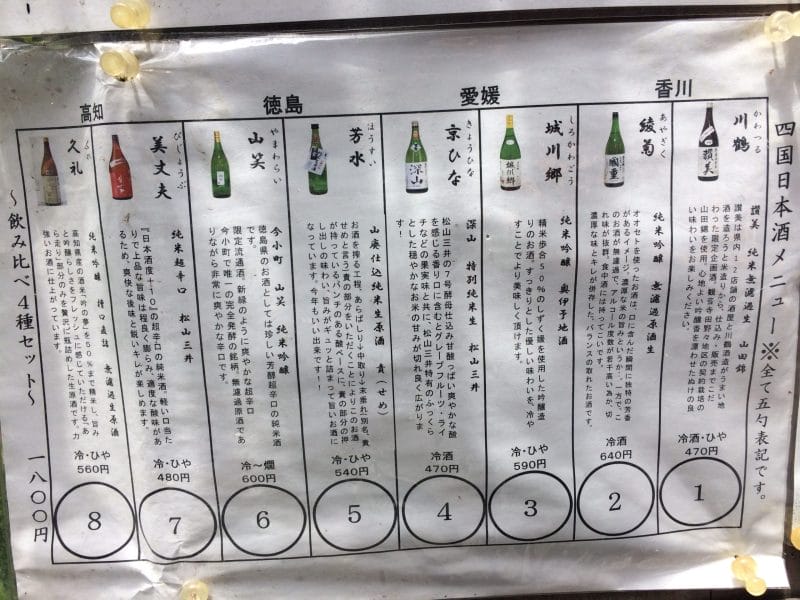 四国日本酒メニュー ※全て五勺表記です。
香川
かわつる
川鶴
讃美 純米無濾過生 山田錦
讃美は県内12店舗の酒屋と川鶴酒造がうまい地
酒を造ろうと米造りから、仕込み・販売までこだ
わった限定企画酒。観音寺田野々地区の契約栽培の
山田錦を使用。心地よい吟醸香を漂わせたぬけの良
い味わいをお楽しみください。
冷・ひや
470円
1
あやぎく
綾菊
国重
純米吟醸 無濾過生原酒
オオセトを使ったお酒は、口に含んだ瞬間に独特の芳香
があるイメージ。濃厚な米の旨みというか。一方で、こ
のお酒が無濾過で、アルコール度数が若干高い為か、切
れ味が抜群。食中酒には持ってこいです。
濃厚な味とキレが併存した、バランスの取れたお酒です。
冷酒
640円
2
愛媛
しろかわごう
城川郷
純米吟醸 奥伊予地酒
精米歩合50%のしずく媛を使用した吟醸造
りのお酒。すっきりとした優しい味わいを、冷や
すことでより美味しく頂けます。
冷・ひや
590円
3
きょうひな
京ひな
深山
深山 特別純米生 松山三井
松山三井の7号酵母仕込み甘酸っぱい爽やかな酸
を感じる香り口に含むとグレープフルーツ・ライ
チなどの果実味と共に、松山三井特有のふっくら
とした穏やかなお米の甘みが切れ良く広がりま
す!
冷酒
470円
4
徳島
ほうすい
芳水
山廃仕込純米生原酒 責(せめ)
お酒を搾る工程、あらばしり→中取り→末垂れ(別名、責
せめと言う)責の部分をいただきました。ことによりこのお酒
が持っているインパクトがある酸ベースに、責の部分の押
し出しの味わい、旨みがギュッと詰まって旨いお酒に
なっています。今年もいい出来です!!
冷・ひや
540円
5
やまわらい
山笑
今小町 山笑 純米吟醸
徳島県のお酒としては珍しい芳醇超辛口の純米酒
です。
限定流通酒。新緑のように爽やかな超辛口
今小町で唯一の完全発酵の銘柄。無濾過原酒であ
りながら非常に爽やかな辛口です。
冷～燗
600円
6
高知
びじょうぶ
美丈夫
純米超辛口 松山三井
『日本酒度+10』の超辛口の純米酒。軽い口当た
りで上品な旨味は程良く膨らみ、適度な酸味があ
るため、爽快な後味と鋭いキレが楽しめます。
冷・ひや
480円
7
くれ
久礼
純米吟醸 槽口直詰 無濾過生原酒
高知県産の酒米『吟の夢』を50%まで精米し、旨み
と吟醸らしさをフレッシュに感じていただける。あ
ら走り部分のみを贅沢に瓶詰めした生原酒です。力
強いお酒に仕上がっています。
冷・ひや
560円
8
～飲み比べ4種セット～ 一八〇〇円